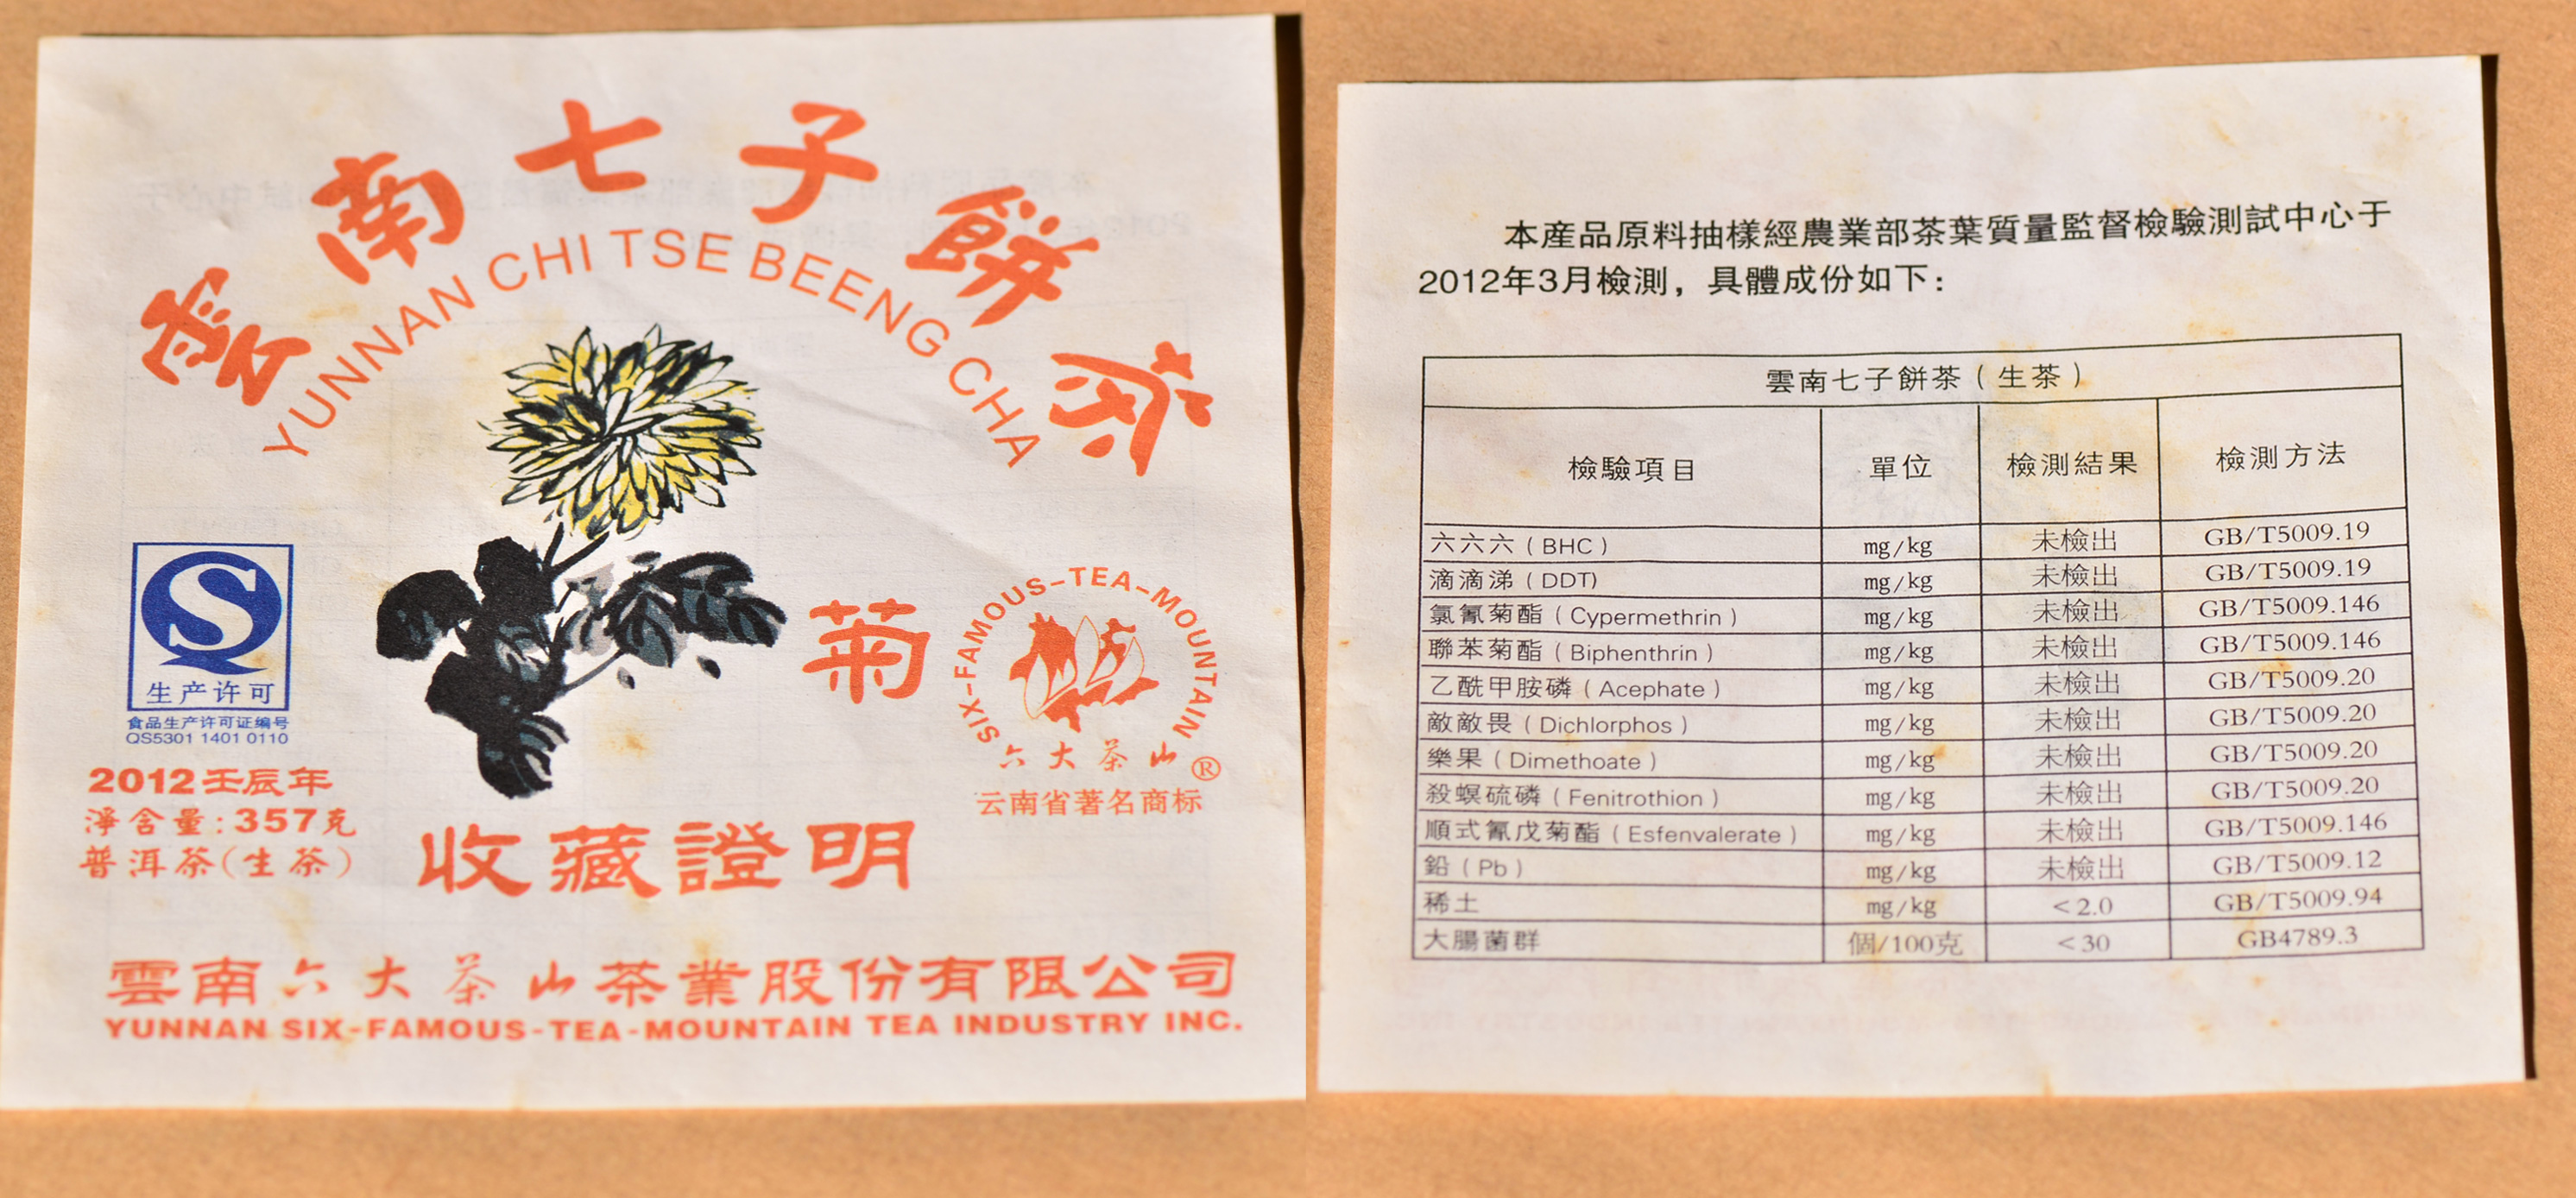 雲南七子餅茶
YUNNAN CHI TSE BEENG CHA
生产许可
食品生产许可证编号
QS5301 1401 0110
菊
SIX-FAMOUS-TEA-MOUNTAIN
六大茶山®
云南省著名商标
2012壬辰年
淨含量:357克
普洱茶(生茶)
收藏證明
雲南六大茶山茶業股份有限公司
YUNNAN SIX-FAMOUS-TEA-MOUNTAIN TEA INDUSTRY INC.
本産品原料抽樣經農業部茶葉質量監督檢驗測試中心于
2012年3月檢測，具體成份如下：
雲南七子餅茶（生茶）
檢驗項目 單位 檢測結果 檢測方法
六六六（BHC） mg/kg 未檢出 GB/T5009.19
滴滴涕（DDT) mg/kg 未檢出 GB/T5009.19
氯氰菊酯（Cypermethrin） mg/kg 未檢出 GB/T5009.146
聯苯菊酯（Biphenthrin） mg/kg 未檢出 GB/T5009.146
乙酰甲胺磷（Acephate） mg/kg 未檢出 GB/T5009.20
敵敵畏（Dichlorphos） mg/kg 未檢出 GB/T5009.20
樂果（Dimethoate） mg/kg 未檢出 GB/T5009.20
殺螟硫磷（Fenitrothion） mg/kg 未檢出 GB/T5009.20
順式氰戊菊酯（Esfenvalerate） mg/kg 未檢出 GB/T5009.146
鉛（Pb） mg/kg 未檢出 GB/T5009.12
稀土 mg/kg <2.0 GB/T5009.94
大腸菌群 個/100克 <30 GB4789.3